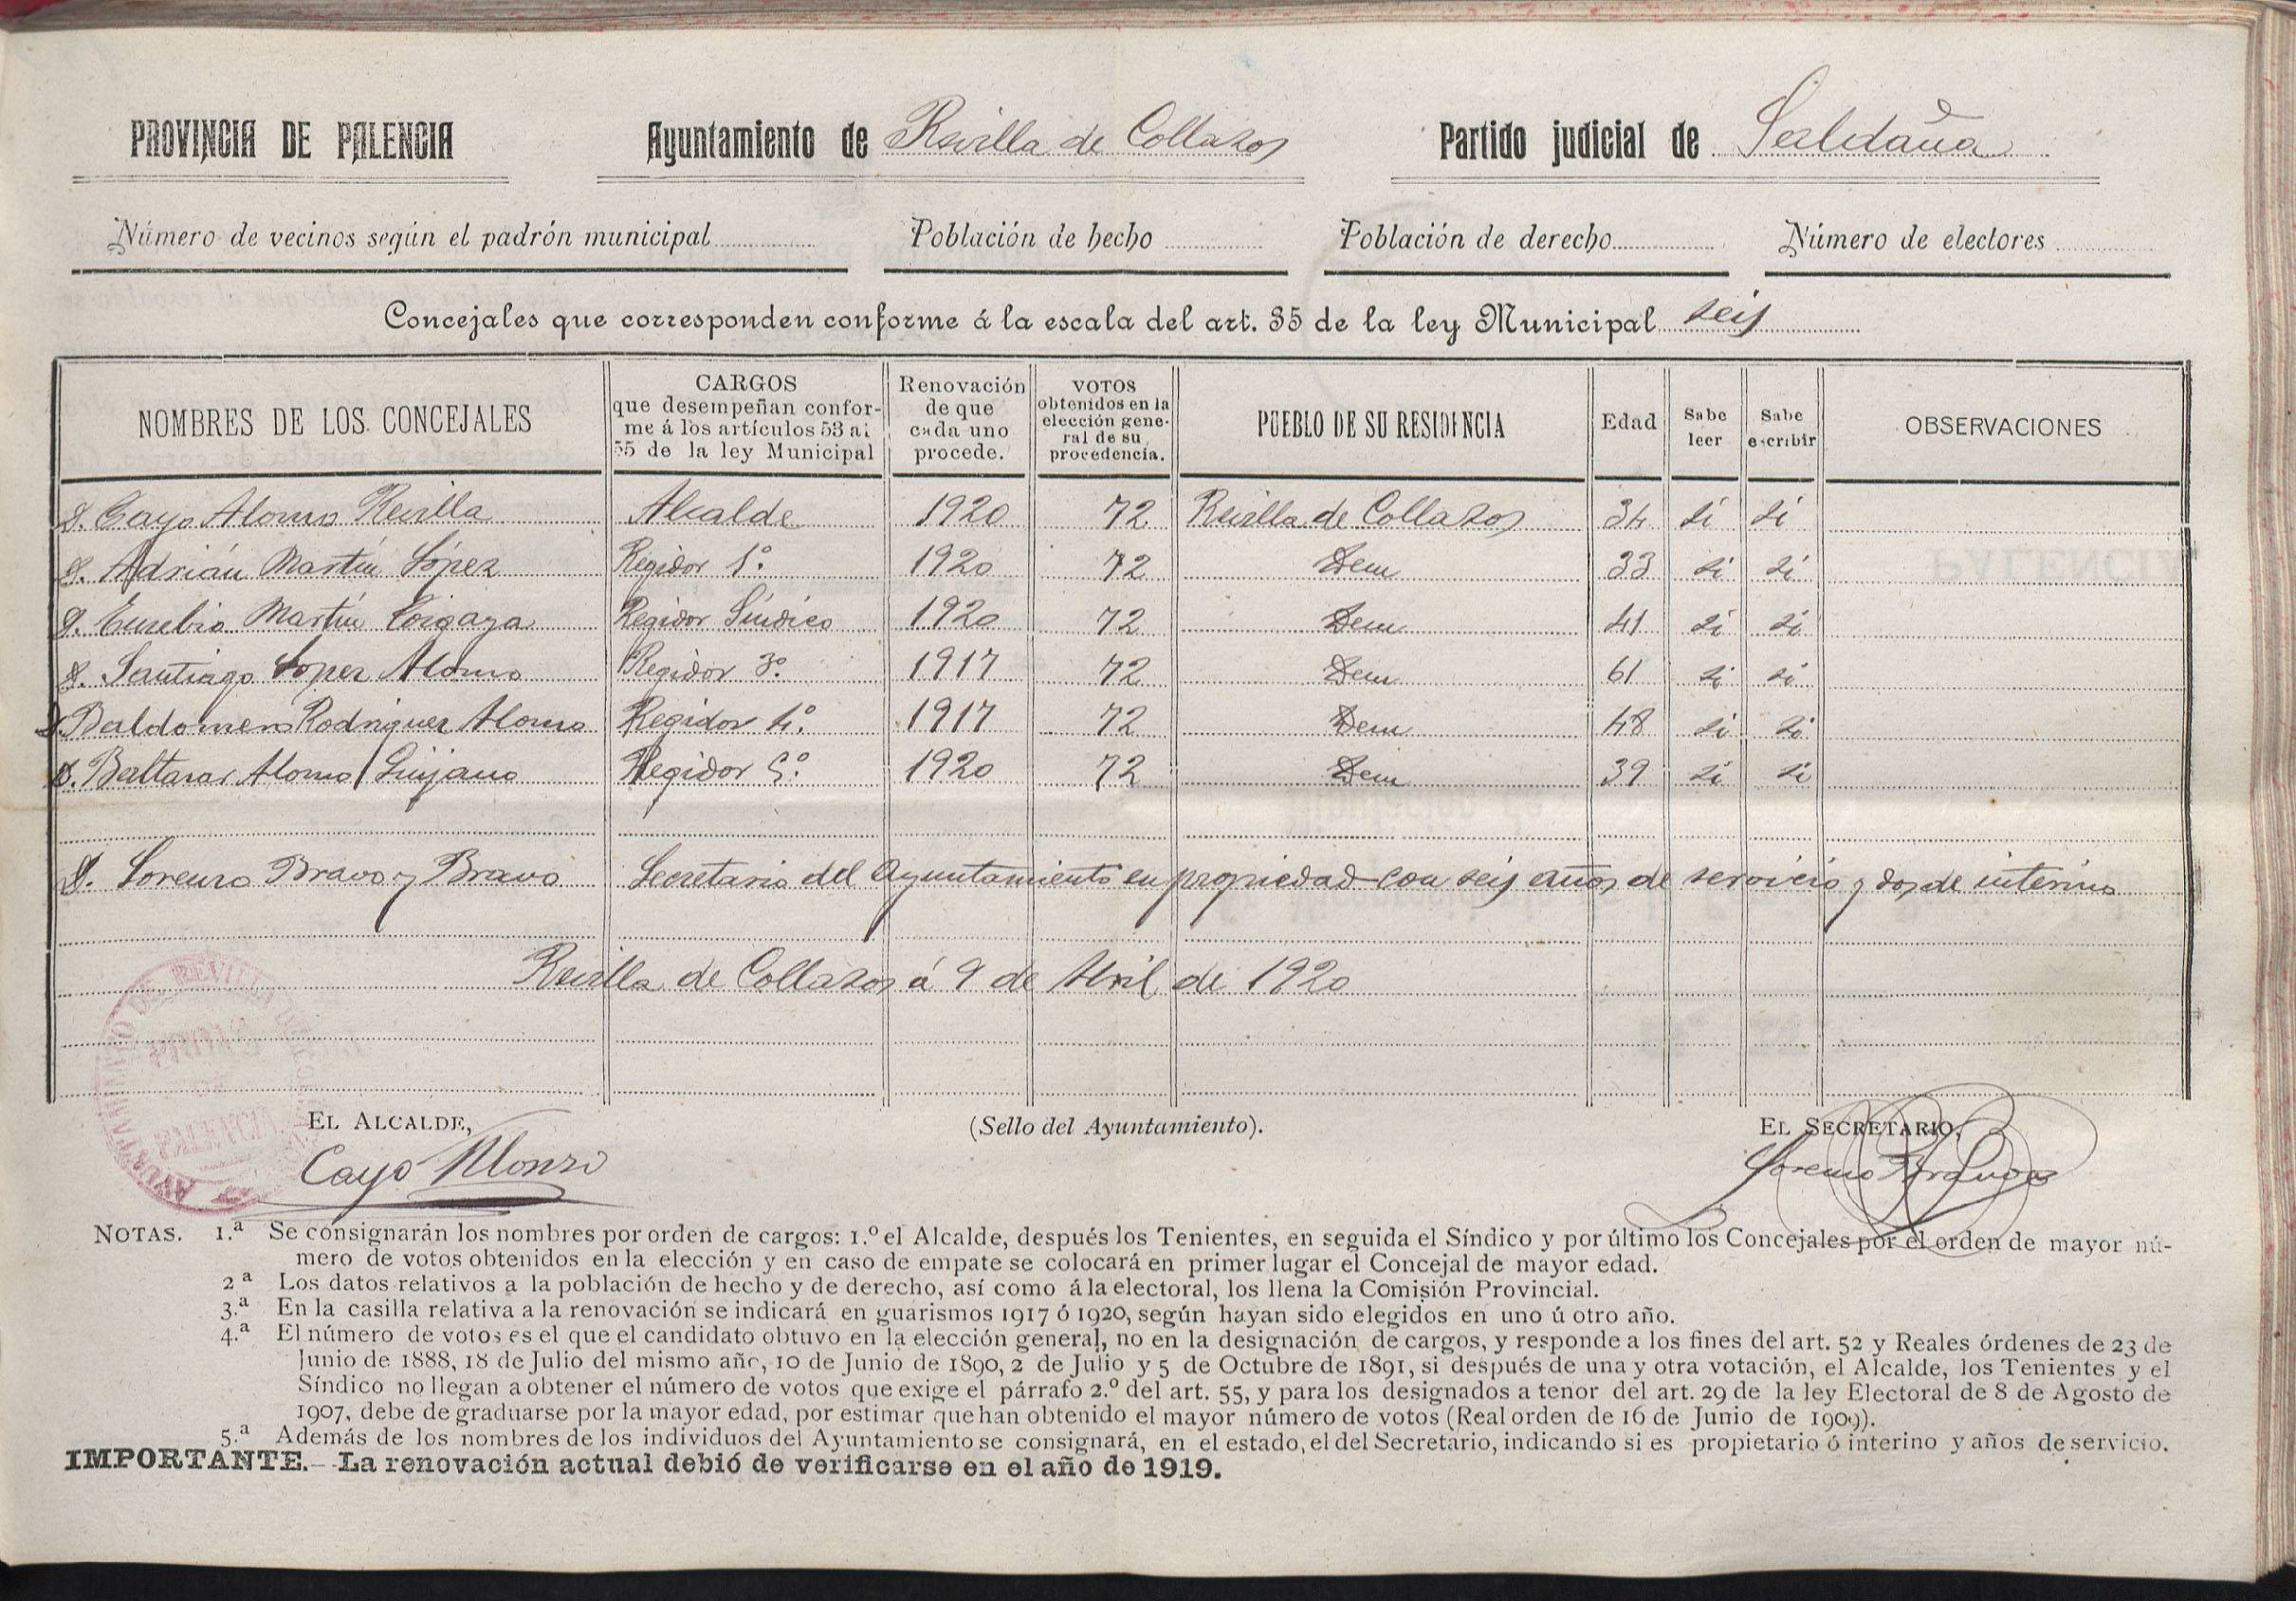 PROVINCIA DE PALENCIA Ayuntamiento de Revilla de Collazos Partido judicial de Saldaña
Número de vecinos según el padrón municipal Población de hecho Población de derecho Número de electores
Concejales que corresponden conforme á la escala del art. 35 de la ley Municipal seis
NOMBRES DE LOS CONCEJALES
CARGOS
que desempeñan confor-
me á los artículos 53 al
55 de la ley Municipal
Renovación
de que
cada uno
procede.
VOTOS
obtenidos en la
elección gene-
ral de su
procedencia.
PUEBLO DE SU RESIDENCIA
Edad
Sabe
leer
Sabe
escribir
OBSERVACIONES
D. Cayo Alonso Revilla Alcalde 1920 72 Revilla de Collazos 34 si si
D. Adrián Martín López Regidor 1.º 1920 72 Idem 33 si si
D. Eusebio Martín Regidor Síndico 1920 72 Idem 41 si si
D. Santiago Lopez Alonso Regidor 3.º 1917 72 Idem 61 si si
D. Baldomero Rodriguez Alonso Regidor 4.º 1917 72 Idem 48 si si
D. Baltasar Alonso Quijano Regidor 5.º 1920 72 Idem 39 si si
D. Lorenzo Bravo y Bravo Secretario del Ayuntamiento en propiedad con seis años de servicio y dos de interino
Revilla de Collazos á 9 de Abril de 1920
AYUNTAMIENTO DE REVILLA DE COLLAZOS
PROV.ª
DE
PALENCIA
EL ALCALDE, (Sello del Ayuntamiento). EL SECRETARIO,
Cayo Alonso Lorenzo Bravo
NOTAS. 1.ª Se consignarán los nombres por orden de cargos: 1.º el Alcalde, después los Tenientes, en seguida el Síndico y por último los Concejales por el orden de mayor nú-
mero de votos obtenidos en la elección y en caso de empate se colocará en primer lugar el Concejal de mayor edad.
2.ª Los datos relativos a la población de hecho y de derecho, así como á la electoral, los llena la Comisión Provincial.
3.ª En la casilla relativa a la renovación se indicará en guarismos 1917 ó 1920, según hayan sido elegidos en uno ú otro año.
4.ª El número de votos es el que el candidato obtuvo en la elección general, no en la designación de cargos, y responde a los fines del art. 52 y Reales órdenes de 23 de
Junio de 1888, 18 de Julio del mismo año, 10 de Junio de 1890, 2 de Julio y 5 de Octubre de 1891, si después de una y otra votación, el Alcalde, los Tenientes y el
Síndico no llegan a obtener el número de votos que exige el párrafo 2.º del art. 55, y para los designados a tenor del art. 29 de la ley Electoral de 8 de Agosto de
1907, debe de graduarse por la mayor edad, por estimar que han obtenido el mayor número de votos (Real orden de 16 de Junio de 1909).
5.ª Además de los nombres de los individuos del Ayuntamiento se consignará, en el estado, el del Secretario, indicando si es propietario ó interino y años de servicio.
IMPORTANTE.—La renovación actual debió de verificarse en el año de 1919.